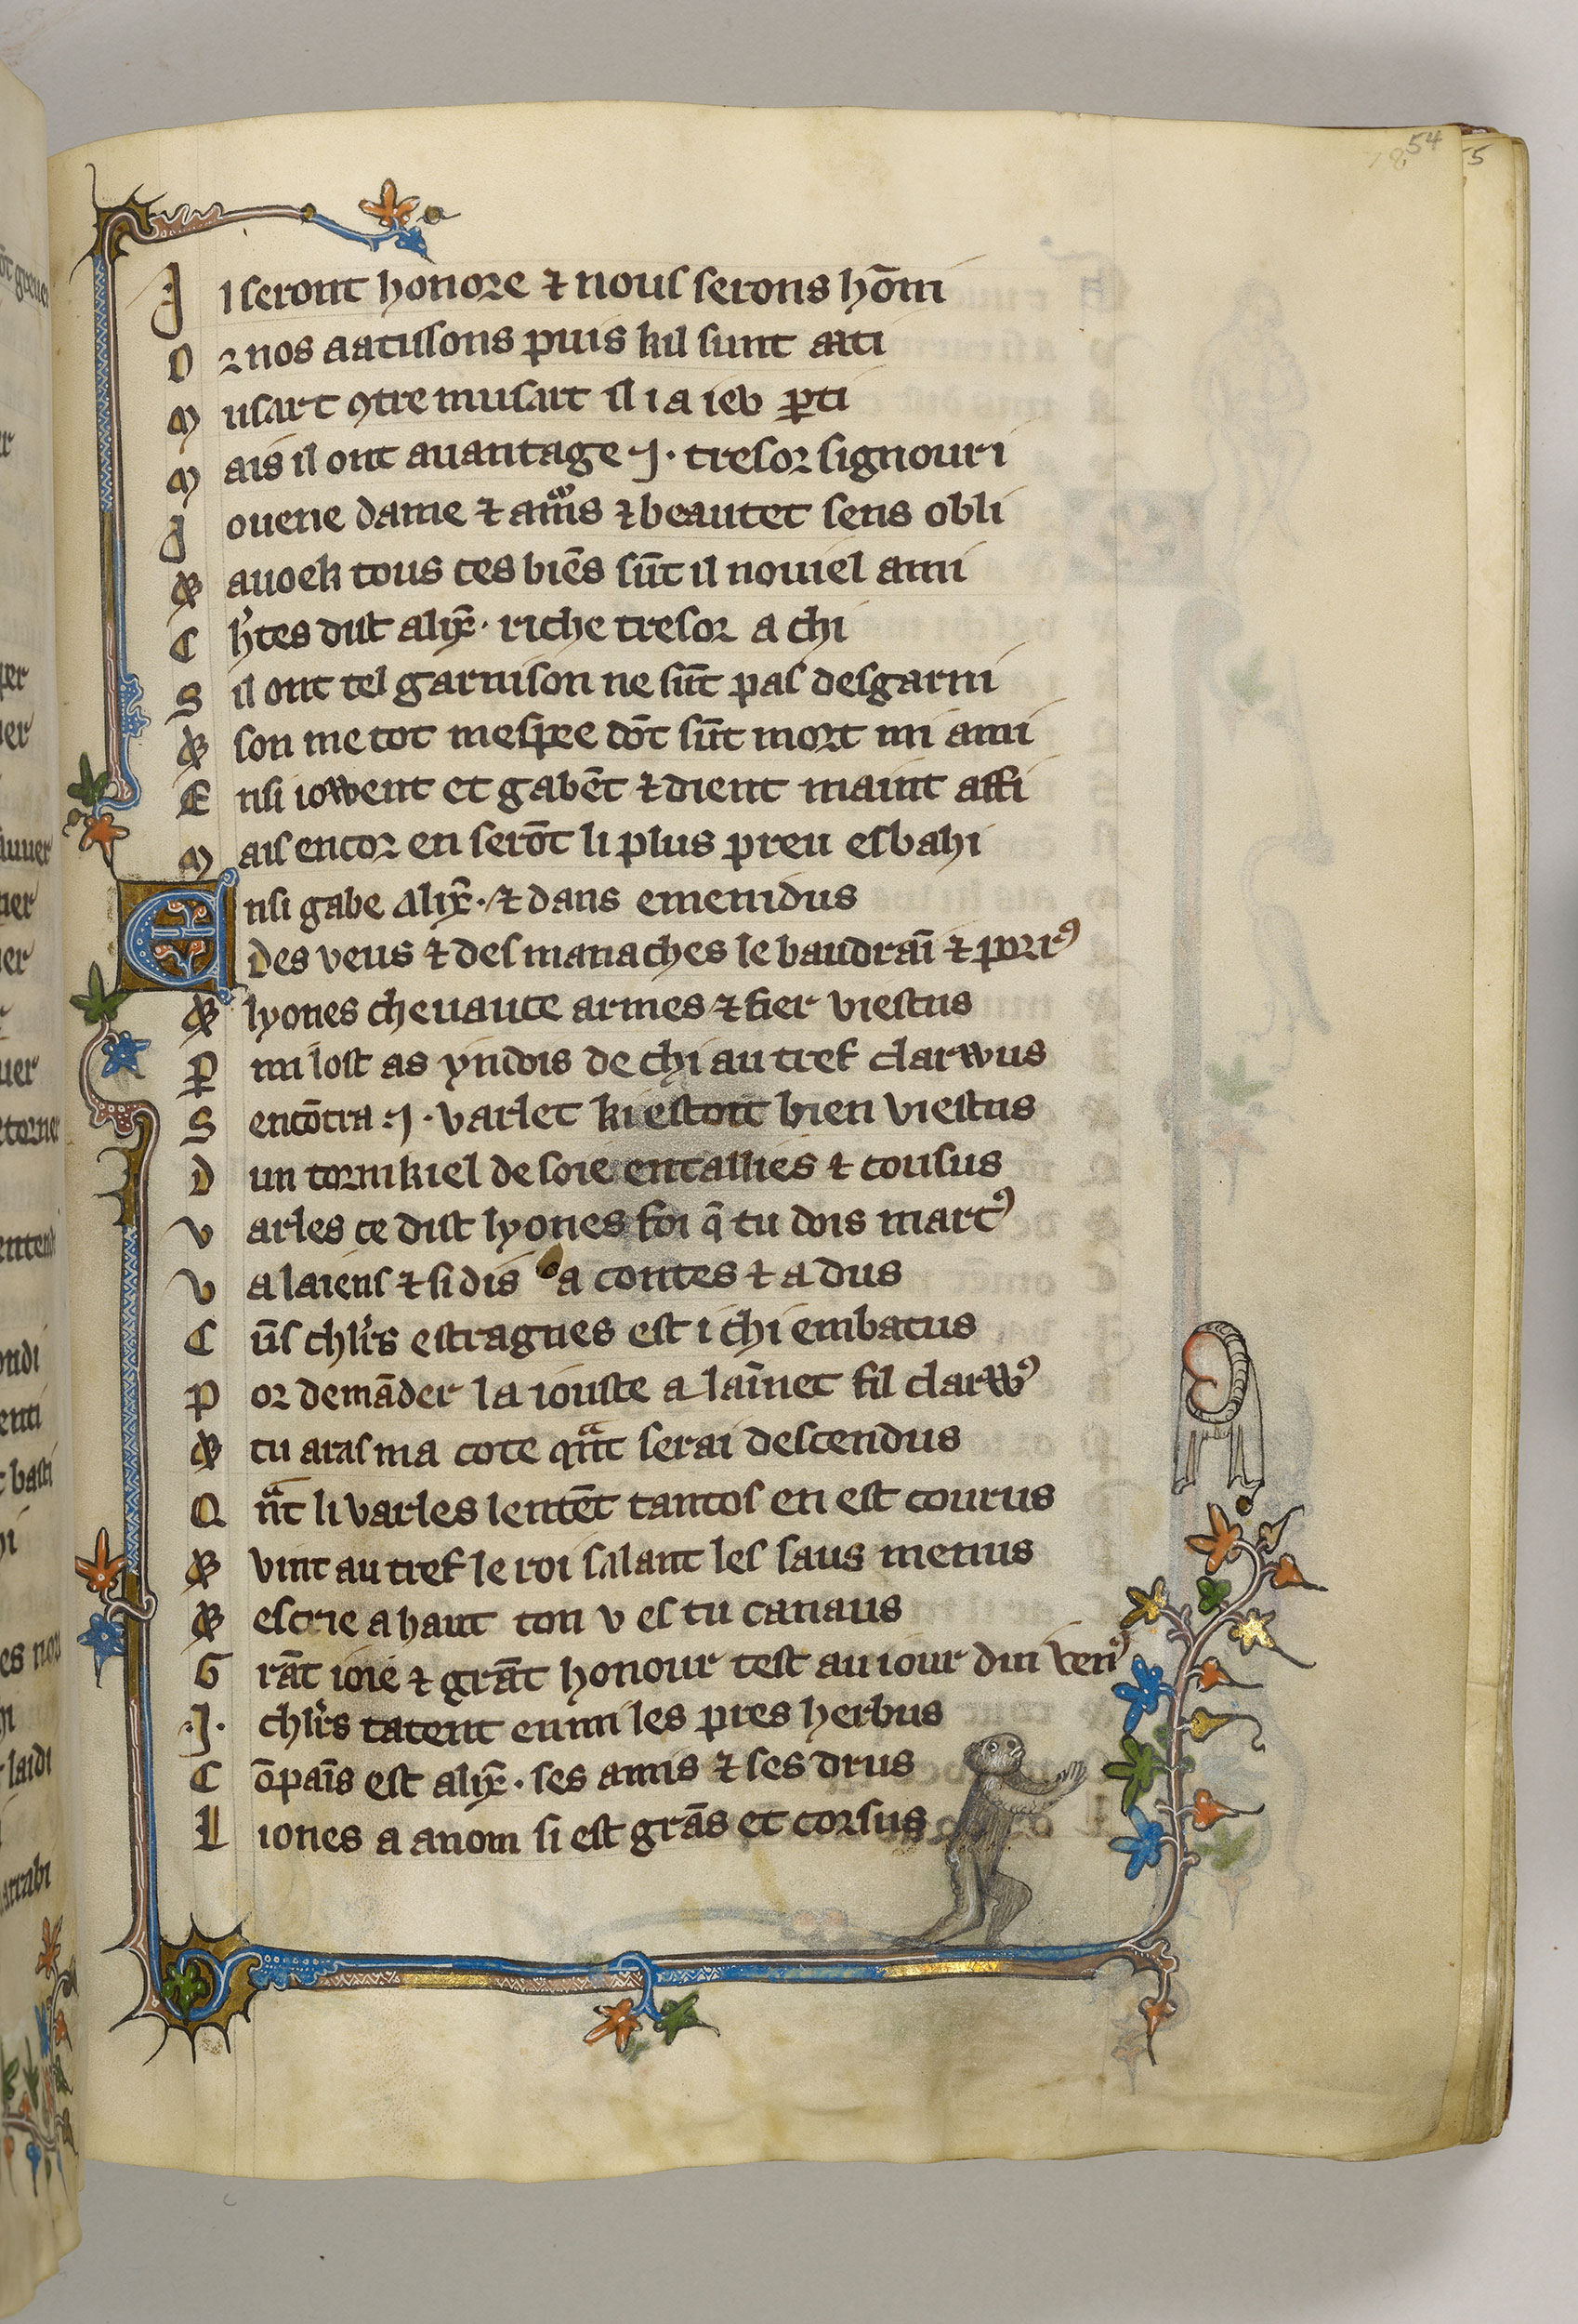 54
55
J l seront honore ⁊ nous serons hōni
O r nos aatissons puis kil sunt aati
M usart ꝯtre musart il i a ieu ꝑti
M ais il ont auantage .j. tresor signouri
J ouene dame ⁊ am̃s ⁊ beautet sens obli
⁊ auoek tous ces biēs sūt il nouiel ami
C h'tes dist alix̄. riche tresor a chi
S il ont tel garnison ne sūt pas desgarni
⁊ son me tot mespee dōt sūt mort mi ami
E nsi iowent et gabēt ⁊ dient maint affi
M ais encor en serōt li plus preu esbahi
E nsi gabe Alix̄. ⁊ dans emenidus
des veus ⁊ des manaches le baudraī ⁊ porꝰ
⁊ lyones cheuauce armes ⁊ fier viestus
P mi lost as yndois de chi au tref clarwus
S encōtra .j. varlet ki estoit bien viestus
D un tornikiel de soie entallies ⁊ cousus
V arles ce dist lyones foi q̄ tu dois martꝰ
V a laiens ⁊ si dis a contes ⁊ a dus
C ūs chl'rs estragnes est ichi embatus
P or demāder la iouste a lainnet fil clarwꝰ
⁊ tu aras ma cote qant serai descendus
Q nt li varles lentēt tantos en est courus
⁊ vint au tref le roi salant les saus menus
⁊ escrie a haut ton v es tu canaus
G rāt ioie ⁊ grāt honour test au iour dui venꝰ
.J. chl'rs tatent enmi les pres herbus
C ōpaīs est alix̄. ses amis ⁊ ses drus
L iones a a nom si est grās et corsus